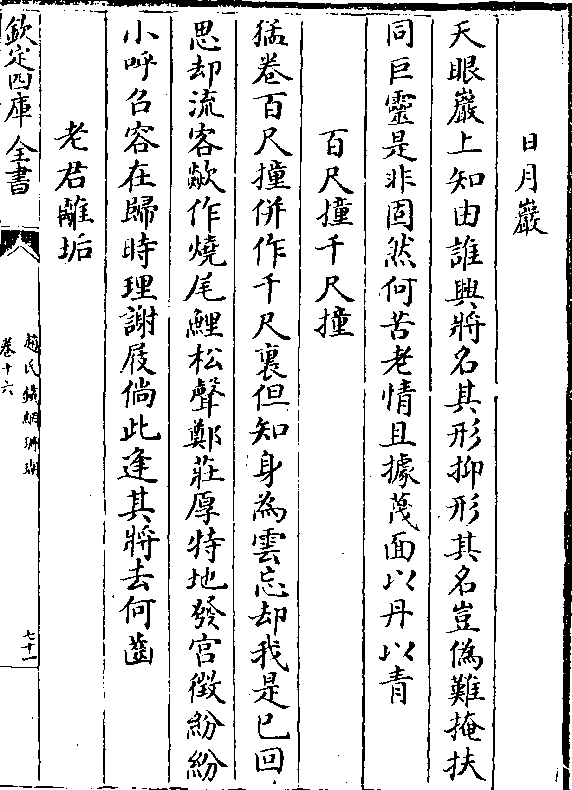 日月巖
天眼巖上知由誰興將名其形抑形其名豈偽難掩扶
同巨靈是非固然何苦老情且據茂面以丹以青
百尺撞千尺撞
猛卷百尺撞併作千尺裏但知身為雲忘却我是已回
思却流客歘作燒尾鯉松聲鄭莊厚特地發宫徵紛紛
小呼名容在歸時理謝屐倘此逢其將去何齒
老君離垢
欽定四庫全書
趙氏鐵網珊瑚
卷十六
七十一